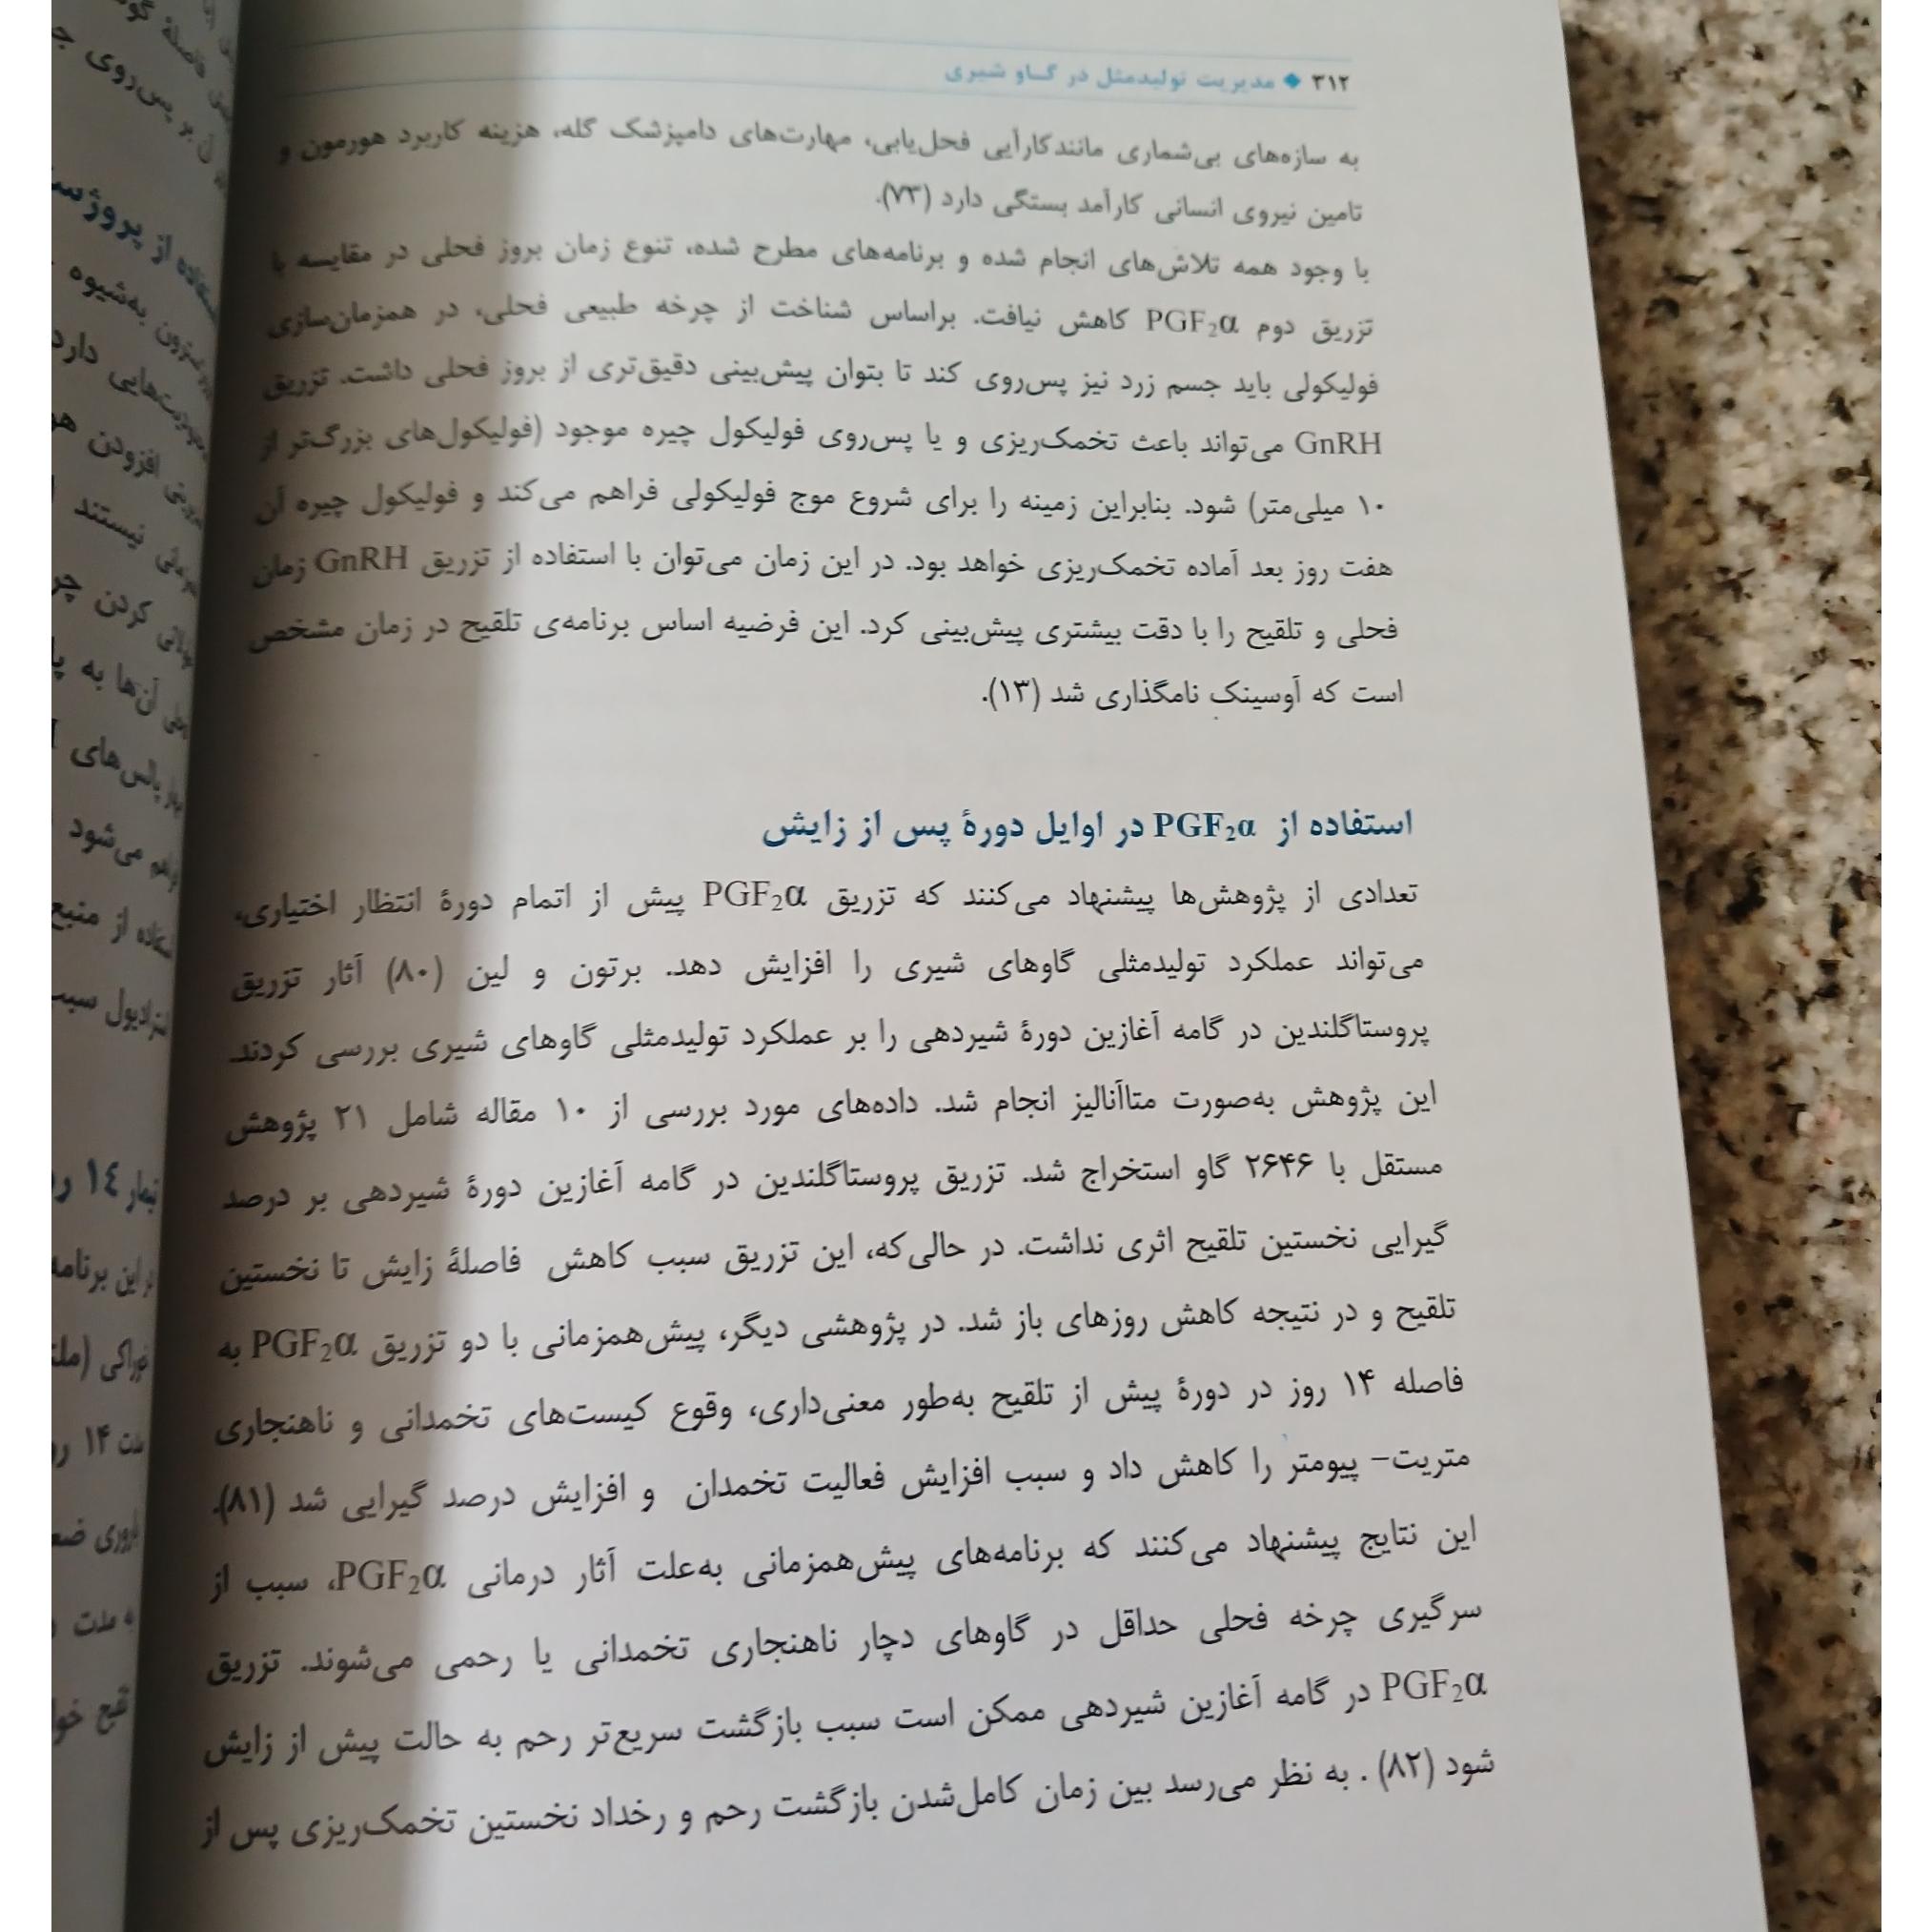 ۳۱۲ ◆ مدیریت تولیدمثل در گاو شیری
به سازه‌های بی‌شماری مانندکارآیی فحل‌یابی، مهارت‌های دامپزشک گله، هزینه کاربرد هورمون و
تامین نیروی انسانی کارآمد بستگی دارد (۷۳).
با وجود همه تلاش‌های انجام شده و برنامه‌های مطرح شده، تنوع زمان بروز فحلی در مقایسه با
تزریق دوم PGF₂α کاهش نیافت. براساس شناخت از چرخه طبیعی فحلی، در همزمان‌سازی
فولیکولی باید جسم زرد نیز پس‌روی کند تا بتوان پیش‌بینی دقیق‌تری از بروز فحلی داشت. تزریق
GnRH می‌تواند باعث تخمک‌ریزی و یا پس‌روی فولیکول چیره موجود (فولیکول‌های بزرگ‌تر از
۱۰ میلی‌متر) شود. بنابراین زمینه را برای شروع موج فولیکولی فراهم می‌کند و فولیکول چیره آن
هفت روز بعد آماده تخمک‌ریزی خواهد بود. در این زمان می‌توان با استفاده از تزریق GnRH زمان
فحلی و تلقیح را با دقت بیشتری پیش‌بینی کرد. این فرضیه اساس برنامه‌ی تلقیح در زمان مشخص
است که آوسینک نامگذاری شد (۱۳).
استفاده از PGF₂α در اوایل دورهٔ پس از زایش
تعدادی از پژوهش‌ها پیشنهاد می‌کنند که تزریق PGF₂α پیش از اتمام دورهٔ انتظار اختیاری،
می‌تواند عملکرد تولیدمثلی گاوهای شیری را افزایش دهد. برتون و لین (۸۰) آثار تزریق
پروستاگلندین در گامه آغازین دورهٔ شیردهی را بر عملکرد تولیدمثلی گاوهای شیری بررسی کردند.
این پژوهش به‌صورت متاآنالیز انجام شد. داده‌های مورد بررسی از ۱۰ مقاله شامل ۲۱ پژوهش
مستقل با ۲۶۴۶ گاو استخراج شد. تزریق پروستاگلندین در گامه آغازین دورهٔ شیردهی بر درصد
گیرایی نخستین تلقیح اثری نداشت. در حالی‌که، این تزریق سبب کاهش فاصلهٔ زایش تا نخستین
تلقیح و در نتیجه کاهش روزهای باز شد. در پژوهشی دیگر، پیش‌همزمانی با دو تزریق PGF₂α به
فاصله ۱۴ روز در دورهٔ پیش از تلقیح به‌طور معنی‌داری، وقوع کیست‌های تخمدانی و ناهنجاری
متریت- پیومتر را کاهش داد و سبب افزایش فعالیت تخمدان و افزایش درصد گیرایی شد (۸۱).
این نتایج پیشنهاد می‌کنند که برنامه‌های پیش‌همزمانی به‌علت آثار درمانی PGF₂α، سبب از
سرگیری چرخه فحلی حداقل در گاوهای دچار ناهنجاری تخمدانی یا رحمی می‌شوند. تزریق
PGF₂α در گامه آغازین شیردهی ممکن است سبب بازگشت سریع‌تر رحم به حالت پیش از زایش
شود (۸۲) . به نظر می‌رسد بین زمان کامل‌شدن بازگشت رحم و رخداد نخستین تخمک‌ریزی پس از